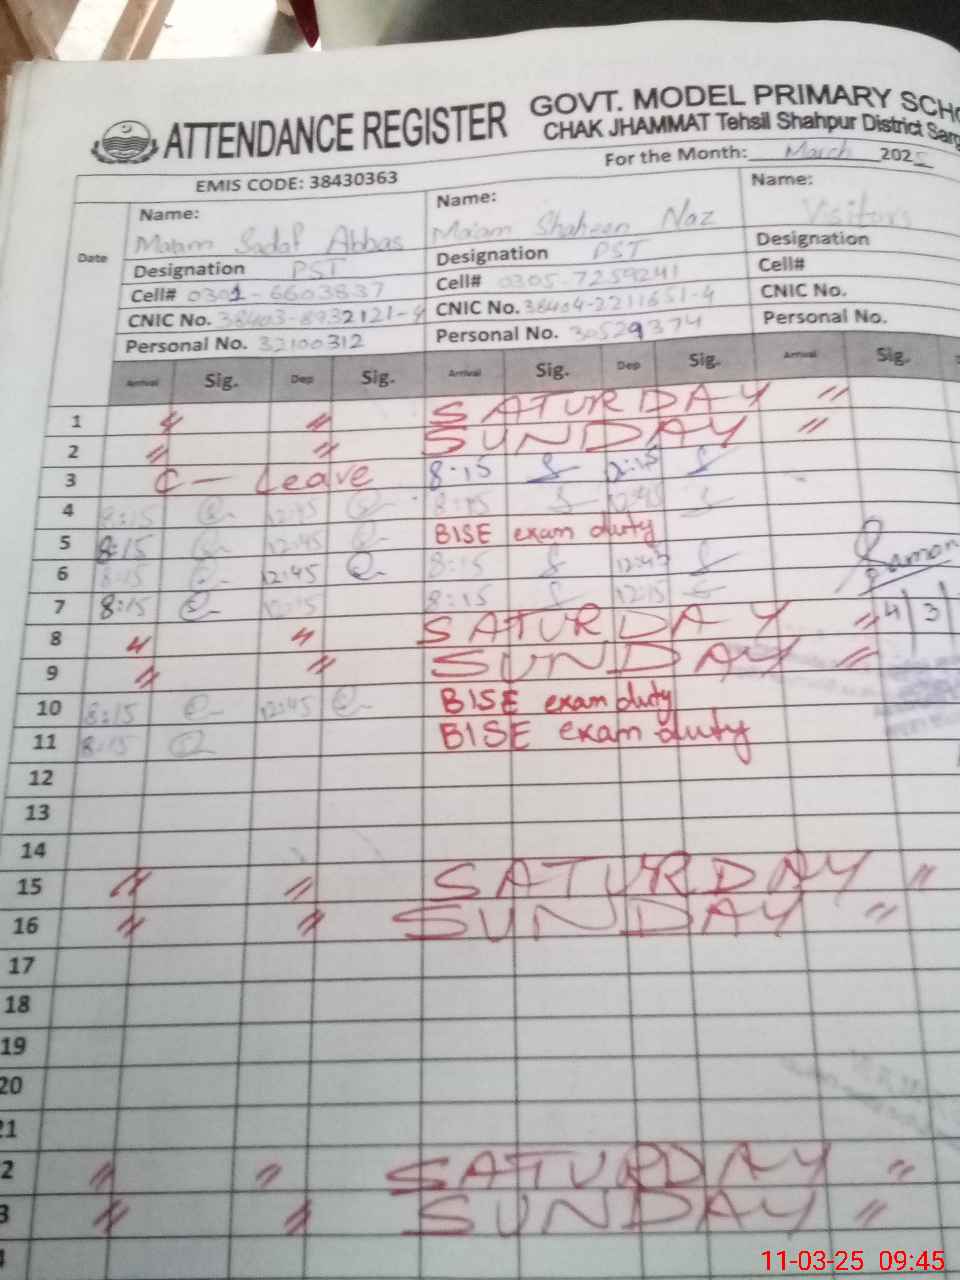 ATTENDANCE REGISTER
GOVT. MODEL PRIMARY
CHAK JHAMMAT Tehsil Shahpur District
For the Month: March 2025
EMIS CODE: 38430363
Date
Name: Name: Name:
Sadaf Abbas Shaheen Naz Visitors
Designation PST Designation PST Designation
Cell# 0301-6603837 Cell# 0305-7259241 Cell#
CNIC No. CNIC No. CNIC No.
Personal No. 32100312 Personal No. 30529374 Personal No.
Arrival Sig. Dep Sig. Arrival Sig. Dep Sig. Arrival Sig.
1 〃 〃 SATURDAY 〃
2 〃 〃 SUNDAY 〃
3 C - Leave 8:15 12:15
4 8:15 12:45 8:45 12:45
5 8:15 12:45 BISE exam duty
6 8:15 12:45 8:15 12:45
7 8:15 8:15 12:15
8 〃 〃 SATURDAY 〃 4 3
9 〃 〃 SUNDAY 〃
10 8:15 12:45 BISE exam duty
11 8:15 BISE exam duty
12
13
14
15 〃 〃 SATURDAY 〃
16 〃 〃 SUNDAY 〃
17
18
19
20
21
2 〃 〃 SATURDAY 〃
3 〃 〃 SUNDAY 〃
11-03-25 09:45